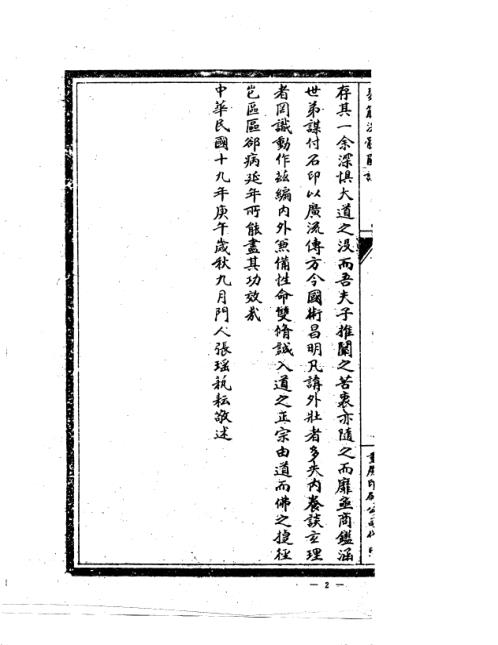 存其一余深惧大道之没而吾夫子推闡之苦衷亦隨之而靡亟商鑑涵
世弟謀付石印以廣流傳方今國術昌明凡講外壯者多失内養談玄理
者罔識動作茲編内外兼備性命雙脩誠入道之正宗由道而佛之捷徑
岂區區郤病延年所能盡其功效哉
中華民國十九年庚午歲秋九月門人張瑶執耘敬述
— 2 —